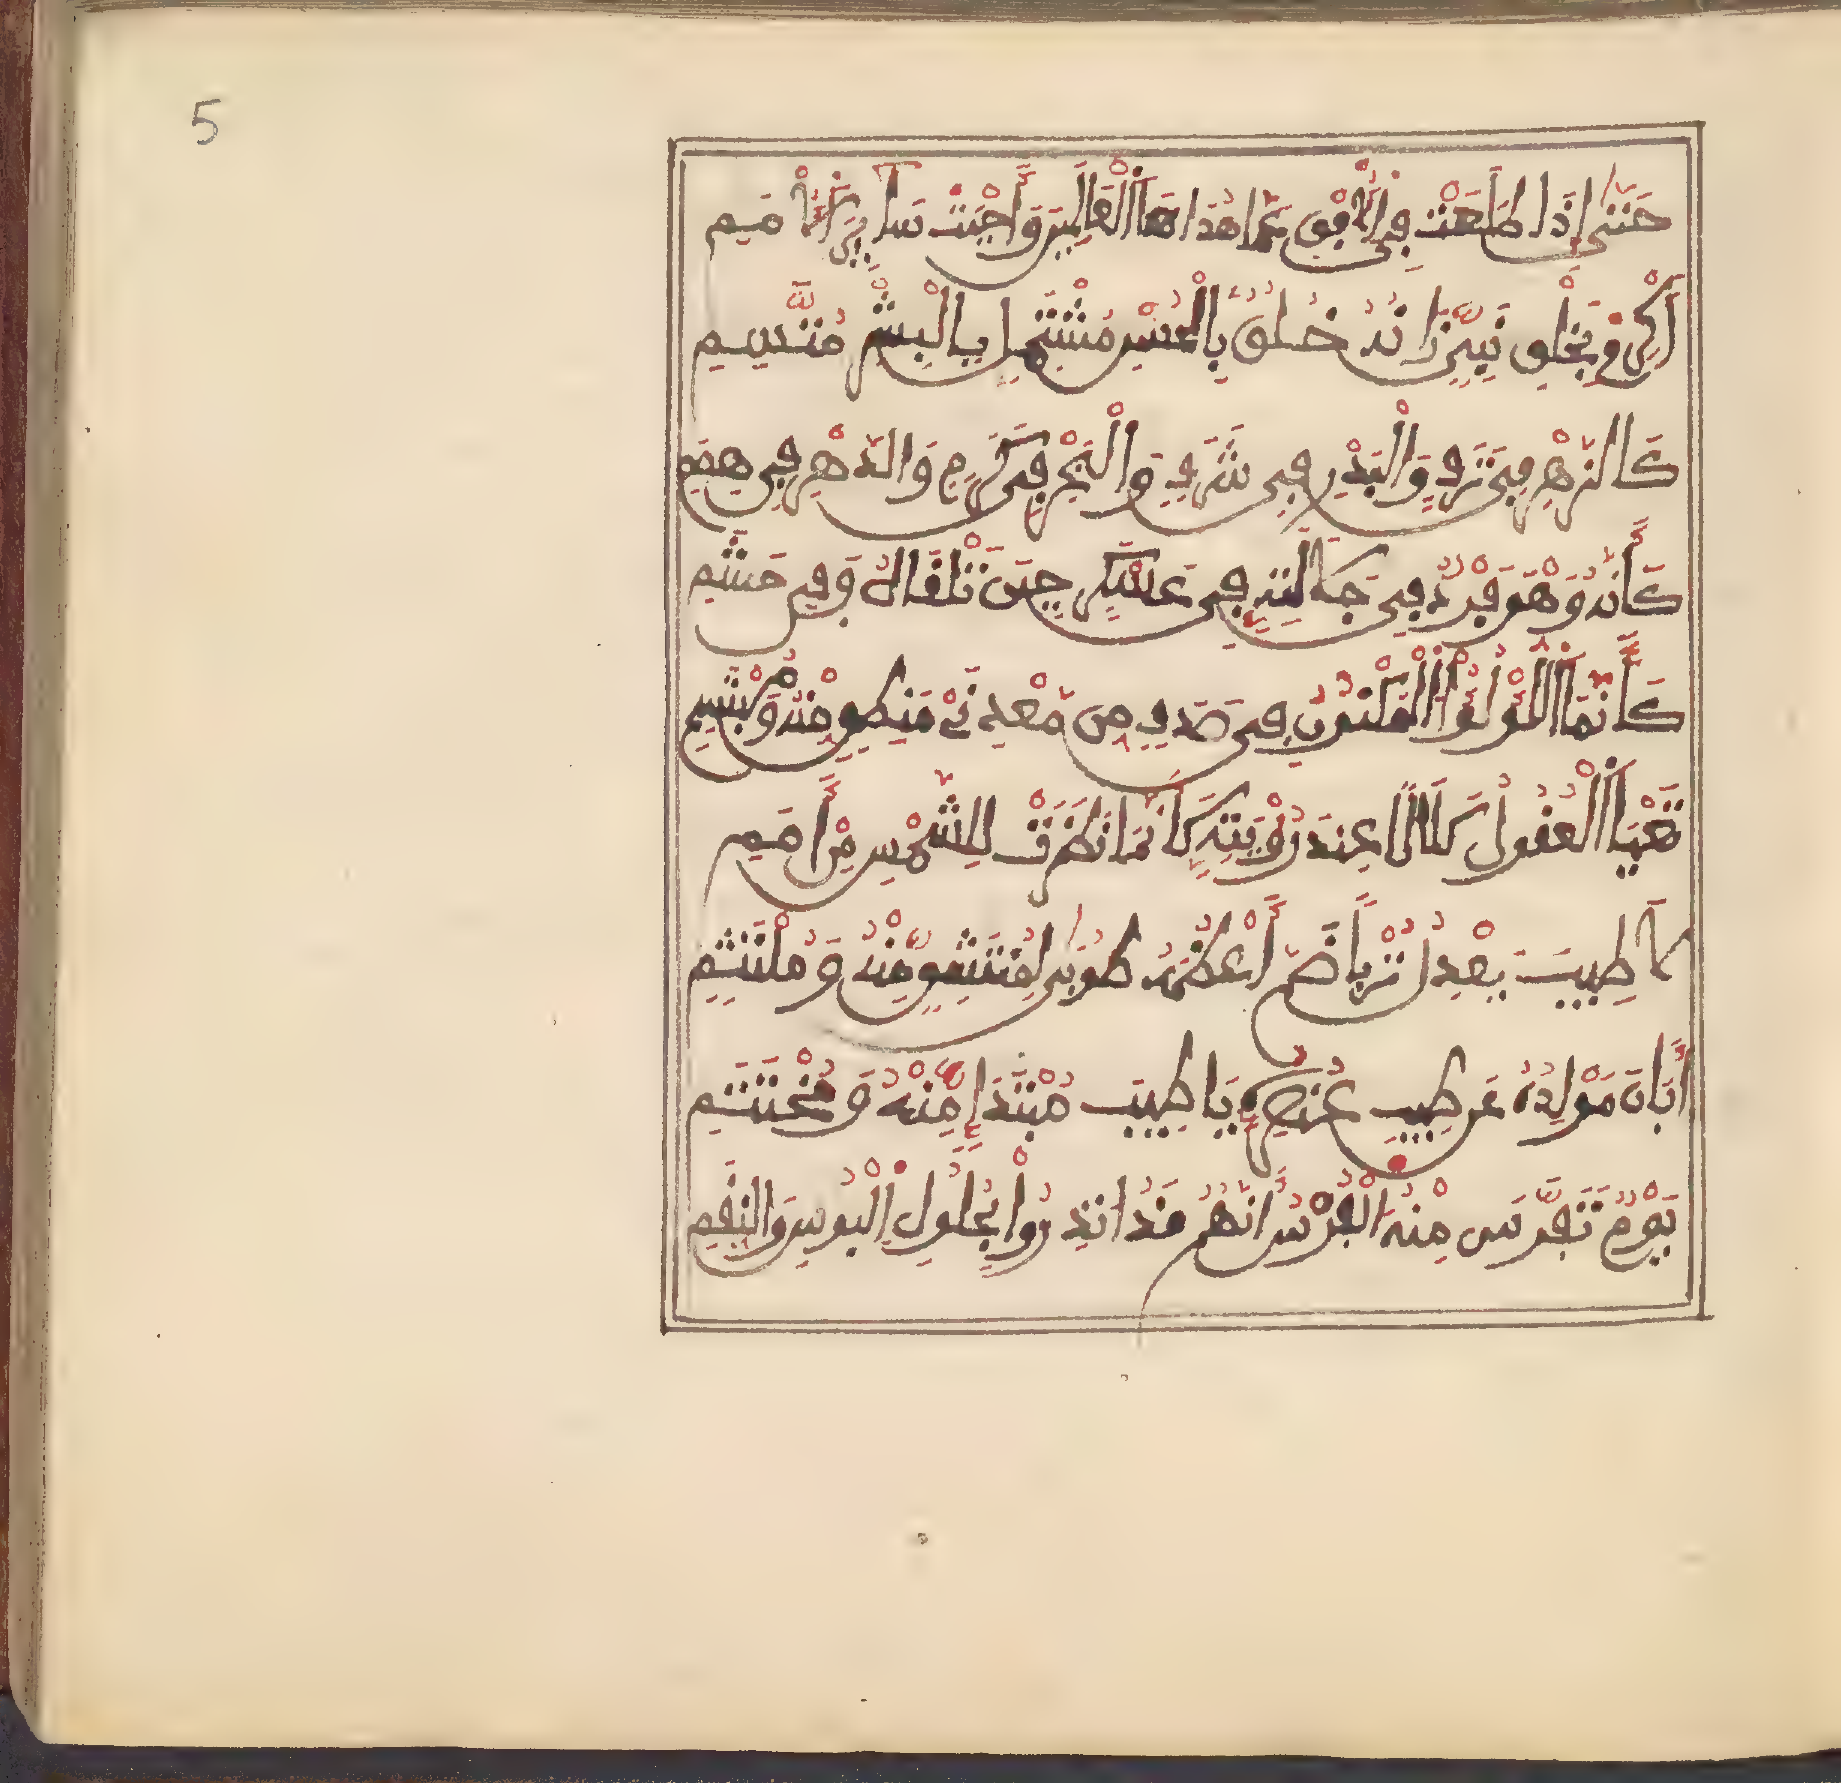 5
حَتَّى إِذَا طَلَعَتْ فِي الْأُفْقِ عَمَّ هُدَاهَا الْعَالَمِينَ وَأَحْيَتْ سَآئِرَ الْأُمَمِ
أَكْرِمْ بِخَلْقِ نَبِيٍّ زَانَهُ خُلُقٌ بِالْحُسْنِ مُشْتَمِلٍ بِالْبِشْرِ مُتَّسِمِ
كَالزَّهْرِ فِي تَرَفٍ وَالْبَدْرِ فِي شَرَفٍ وَالْبَحْرِ فِي كَرَمٍ وَالدَّهْرِ فِي هِمَمِ
كَأَنَّهُ وَهْوَ فَرْدٌ فِي جَلَالَتِهِ فِي عَسْكَرٍ حِينَ تَلْقَاهُ وَفِي حَشَمِ
كَأَنَّمَا اللُّؤْلُؤُ الْمَكْنُونُ فِي صَدَفٍ مِن مَّعْدِنَيْ مَنْطِقٍ مِنْهُ وَمُبْتَسَمِ
تَعْيَا الْعُقُولُ كَلَالًا عِندَ رُؤْيَتِهِ كَأَنَّمَا نَظَرَتْ لِلشَّمْسِ مِنْ أَمَمِ
لَا طِيبَ يَعْدِلُ تُرْبًا ضَمَّ أَعْظُمَهُ طُوبَى لِمُنْتَشِقٍ مِّنْهُ وَمُلْتَثِمِ
أَبَانَ مَوْلِدُهُ عَن طِيبِ عُنْصُرِهِ يَا طِيبَ مُبْتَدَإٍ مِّنْهُ وَمُخْتَتَمِ
يَوْمٌ تَفَرَّسَ مِنْهُ الْفُرْسُ أَنَّهُمُ قَدْ أُنذِرُوا بِحُلُولِ الْبُوسِ وَالنِّقَمِ